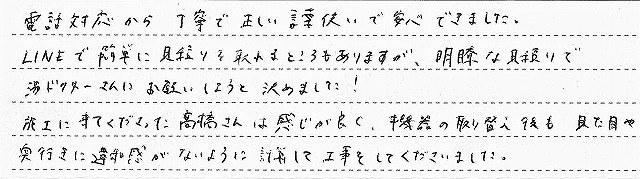 電話対応から丁寧で正しい言葉使いで安心できました。
LINEで簡単に見積りを取れるところもありますが、明瞭な見積りで
湯ドクターさんにお願いしようと決めました!
施工に来てくださった高橋さんは感じが良く、機器の取り替え後も見た目や
奥行きに違和感がないように計算して工事をしてくださいました。